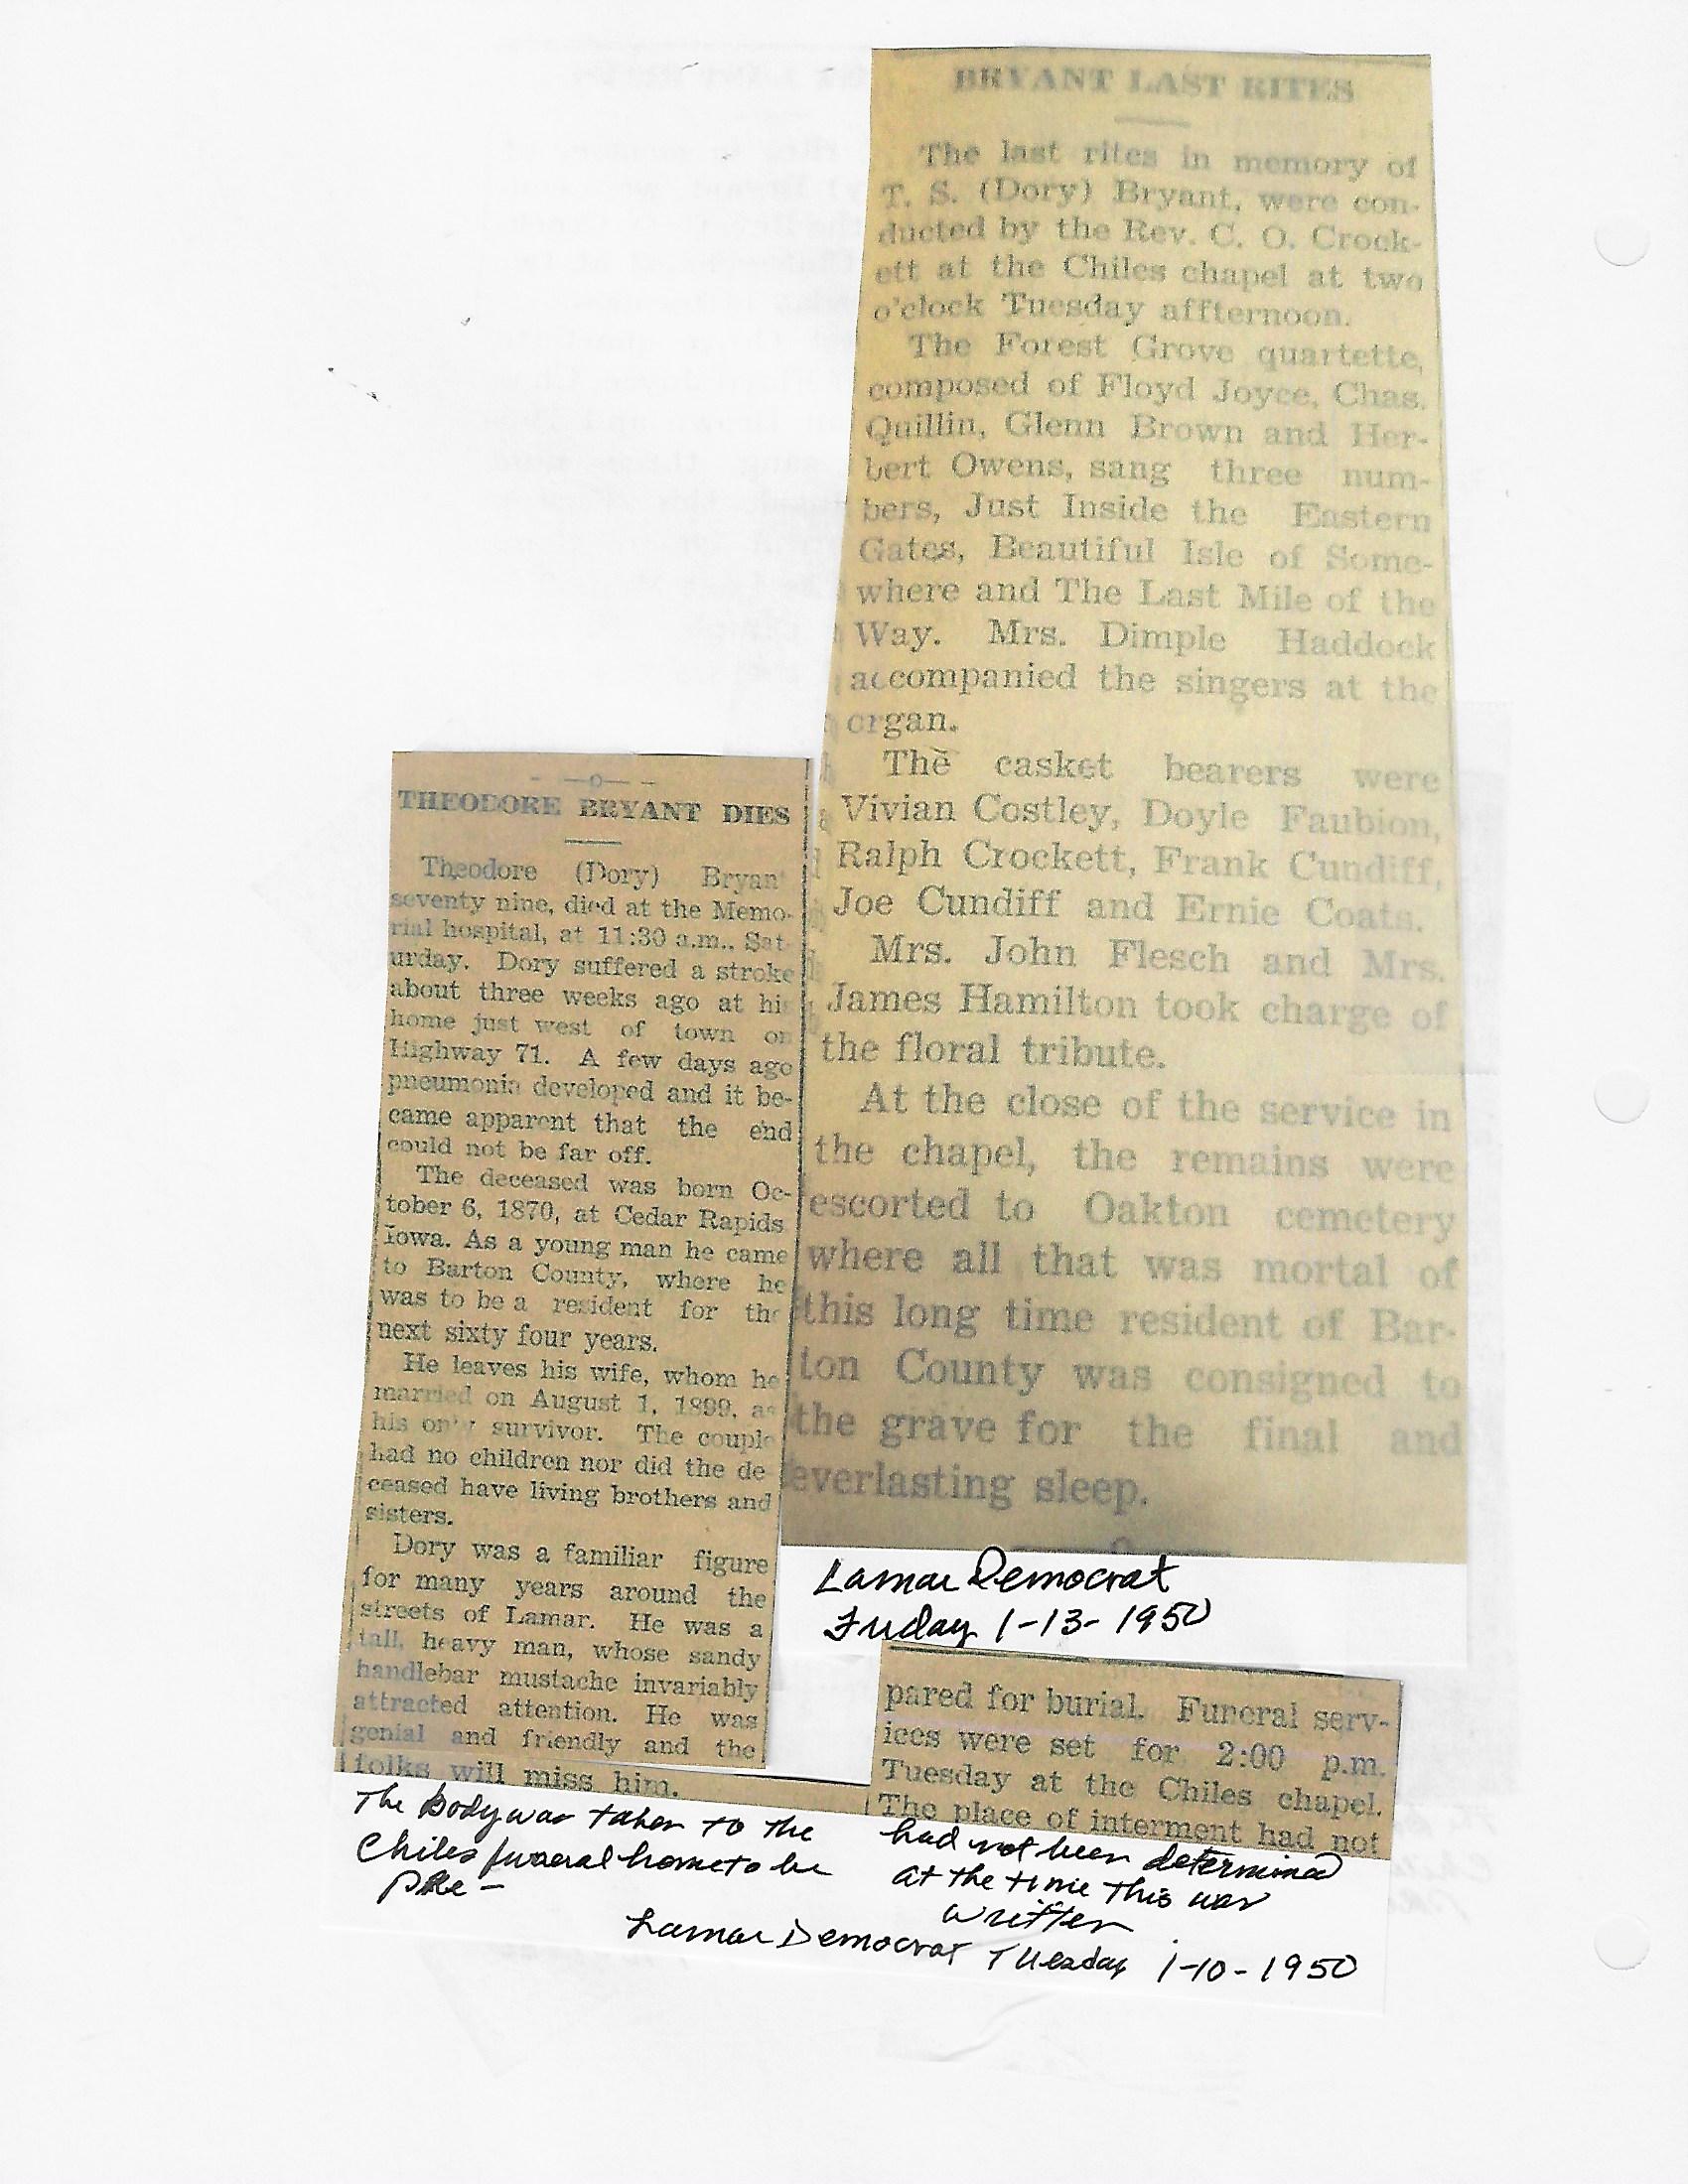 THEODORE BRYANT DIES
Theodore (Dory) Bryan
seventy nine, died at the Memo-
rial hospital, at 11:30 a.m., Sat-
urday. Dory suffered a stroke
about three weeks ago at his
home just west of town on
Highway 71. A few days ago
pneumonia developed and it be-
came apparent that the end
could not be far off.
The deceased was born Oc-
tober 6, 1870, at Cedar Rapids
Iowa. As a young man he came
to Barton County, where he
was to be a resident for the
next sixty four years.
He leaves his wife, whom he
married on August 1, 1899, as
his only survivor. The couple
had no children nor did the de-
ceased have living brothers and
sisters.
Dory was a familiar figure
for many years around the
streets of Lamar. He was a
tall, heavy man, whose sandy
handlebar mustache invariably
attracted attention. He was
genial and friendly and the
folks will miss him.
The body was taken to the
Chiles funeral home to be
pre-
pared for burial. Funeral serv-
ices were set for 2:00 p.m.
Tuesday at the Chiles chapel.
The place of interment had not
had not been determined
at the time this was
written
Lamar Democrat Tuesday 1-10-1950
BRYANT LAST RITES
The last rites in memory of
T. S. (Dory) Bryant, were con-
ducted by the Rev. C. O. Crock-
ett at the Chiles chapel at two
o'clock Tuesday affternoon.
The Forest Grove quartette,
composed of Floyd Joyce, Chas.
Quillin, Glenn Brown and Her-
bert Owens, sang three num-
bers, Just Inside the Eastern
Gates, Beautiful Isle of Some-
where and The Last Mile of the
Way. Mrs. Dimple Haddock
accompanied the singers at the
organ.
The casket bearers were
Vivian Costley, Doyle Faubion,
Ralph Crockett, Frank Cundiff,
Joe Cundiff and Ernie Coats.
Mrs. John Flesch and Mrs.
James Hamilton took charge of
the floral tribute.
At the close of the service in
the chapel, the remains were
escorted to Oakton cemetery
where all that was mortal of
this long time resident of Bar-
ton County was consigned to
the grave for the final and
everlasting sleep.
Lamar Democrat
Friday 1-13-1950